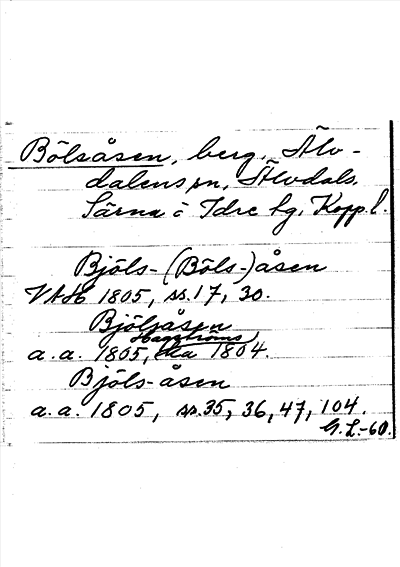 Bölsåsen, berg, Älv-
dalens sn, Älvdals,
Särna o Idre tg, Kopp. l.
Bjöls- (Böls-)åsen
VAH 1805, ss. 17, 30.
Bjölsåsen
Hagströms
a. a. 1805, 1804.
Bjöls-åsen
a. a. 1805, ss. 35, 36, 47, 104.
G. L.-60.